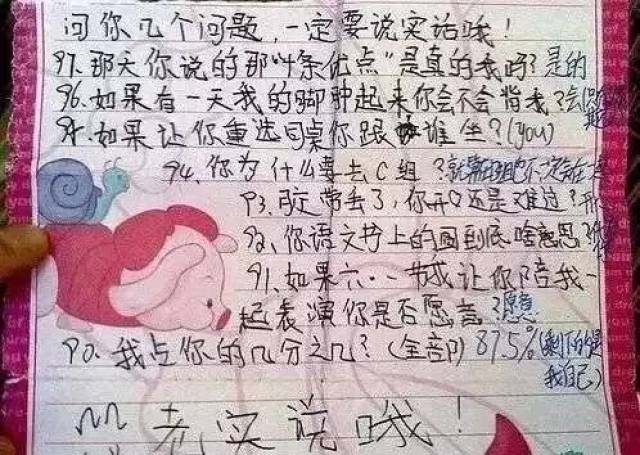 问你几个问题,一定要说实话哦!
97.那天你说的那"十条优点"是真的我吗?是的
96.如果有一天我的脚肿起来你会不会背我?会
95.如果让你重选同桌你跟谁坐?(you)
94、你为什么要去C组?
93.胶带丢了,你开心还是难过?
92、你语文书上的画到底啥意思?
91.如果六·一节我让你陪我一
起表演你是否愿意?愿意
90.我占你的几分之几?(全部)87.5%(剩下的是
我自己)
老实说哦!